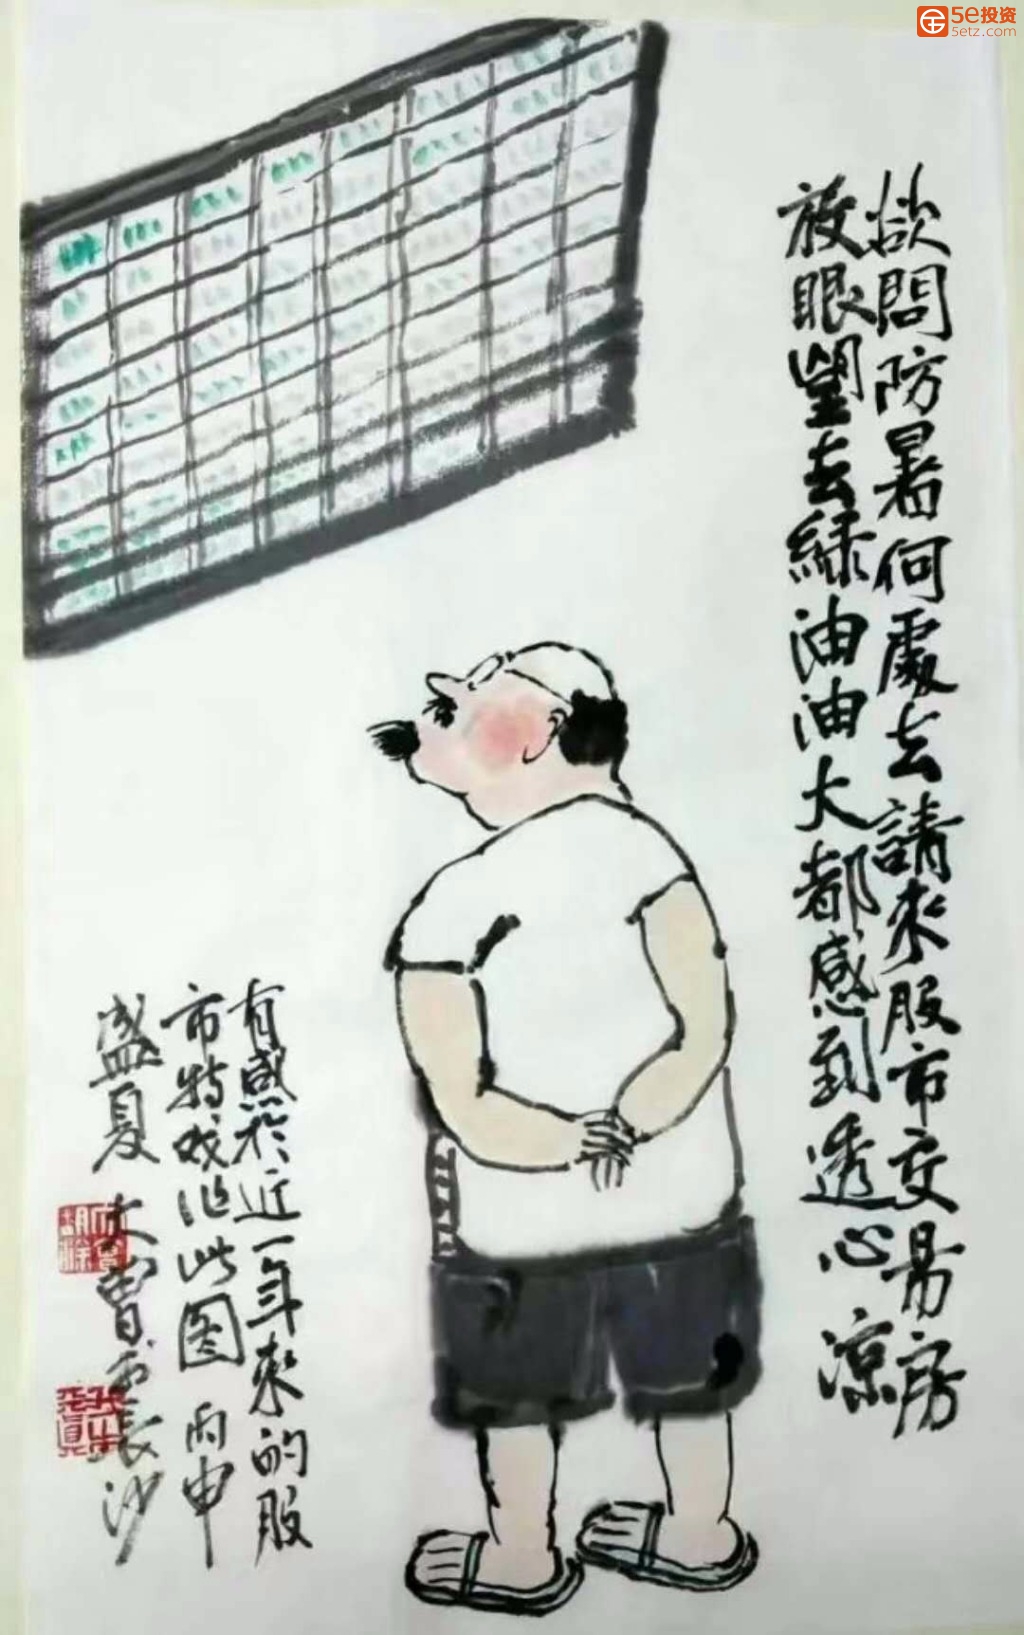 5e投资
5etz.com
欲問防暑何處去請來股市交易房
放眼望去綠油油大都感到透心涼
有感於近一年來的股
市特戏作此图 丙申
盛夏 大曾於長沙